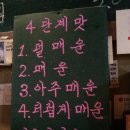 4단계맛
1. 덜매운
2. 매운
3. 아주매운
4. 더럽게매운